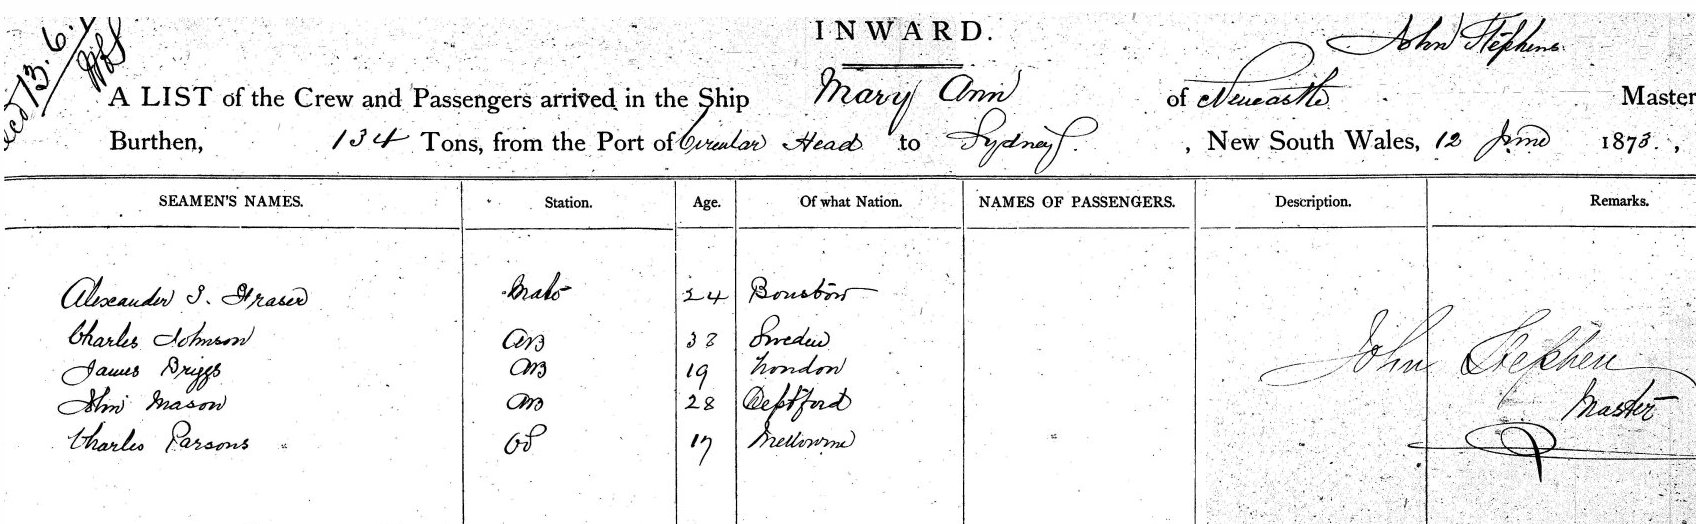 INWARD.
John Stephens
13.6.
A LIST of the Crew and Passengers arrived in the Ship Mary Ann of Newcastle Master
Burthen, 134 Tons, from the Port of Circular Head to Sydney. , New South Wales, 12 June 1873. ,
SEAMEN'S NAMES. Station. Age. Of what Nation. NAMES OF PASSENGERS. Description. Remarks.
Alexander Fraser Mate 24
Charles Johnson AB Sweden
James Briggs AB 19 London
John Mason AB 28 Deptford
Charles Parsons OS 17 Melbourne
John Stephen
Master